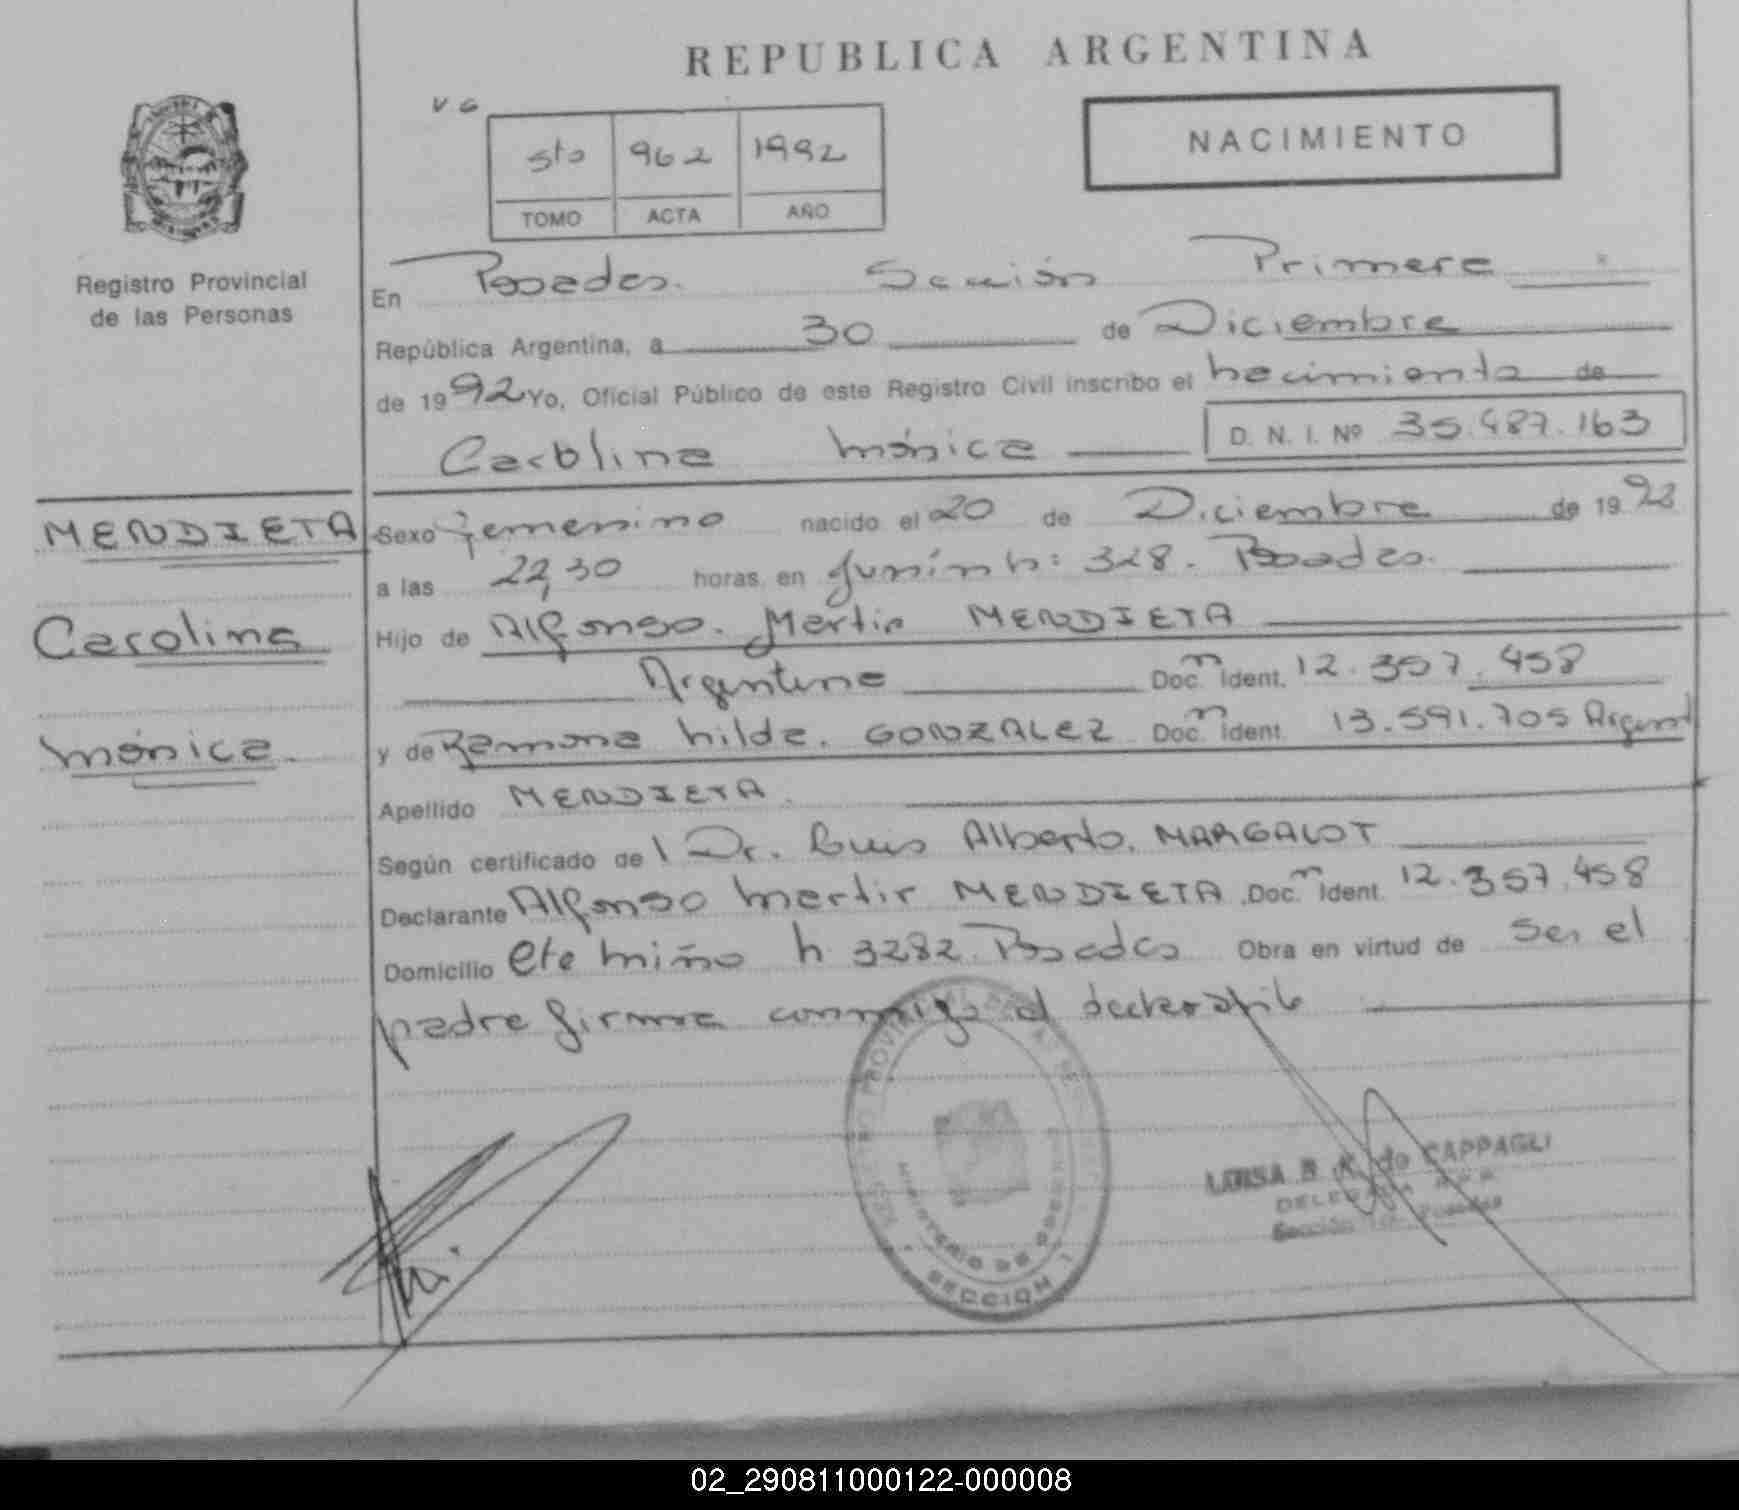 REPUBLICA ARGENTINA
V G
5to 962 1992
TOMO ACTA AÑO
NACIMIENTO
Registro Provincial
de las Personas
En Posadas. Sección Primera
República Argentina, a 30 de Diciembre
de 1992 Yo, Oficial Público de este Registro Civil inscribo el nacimiento de
Carolina Mónica D. N. I. Nº 35.487.163
MENDIETA
Carolina
Mónica.
Sexo femenino nacido el 20 de Diciembre de 1992
a las 22,30 horas en Junín n: 328. Posadas.
Hijo de Alfonso. Martir MENDIETA
Argentina Doc. m Ident. 12.357.458
y de Ramona hilda. GONZALEZ Doc. m Ident. 13.591.705 Argent
Apellido MENDIETA.
Según certificado de l Dr. Luis Alberto. MARGALOT
Declarante Alfonso Martir MENDIETA Doc. m Ident. 12.357.458
Domicilio miño n 3282. Posadas Obra en virtud de Ser el
padre firma conmigo el
REGISTRO PROVINCIAL DE LAS PERSONAS
MINISTERIO DE GOBIERNO
SECCION 1
LUISA B. K. de CAPPAGLI
DELEGADA R.P.P.
Sección 1a. Posadas
02_290811000122-000008